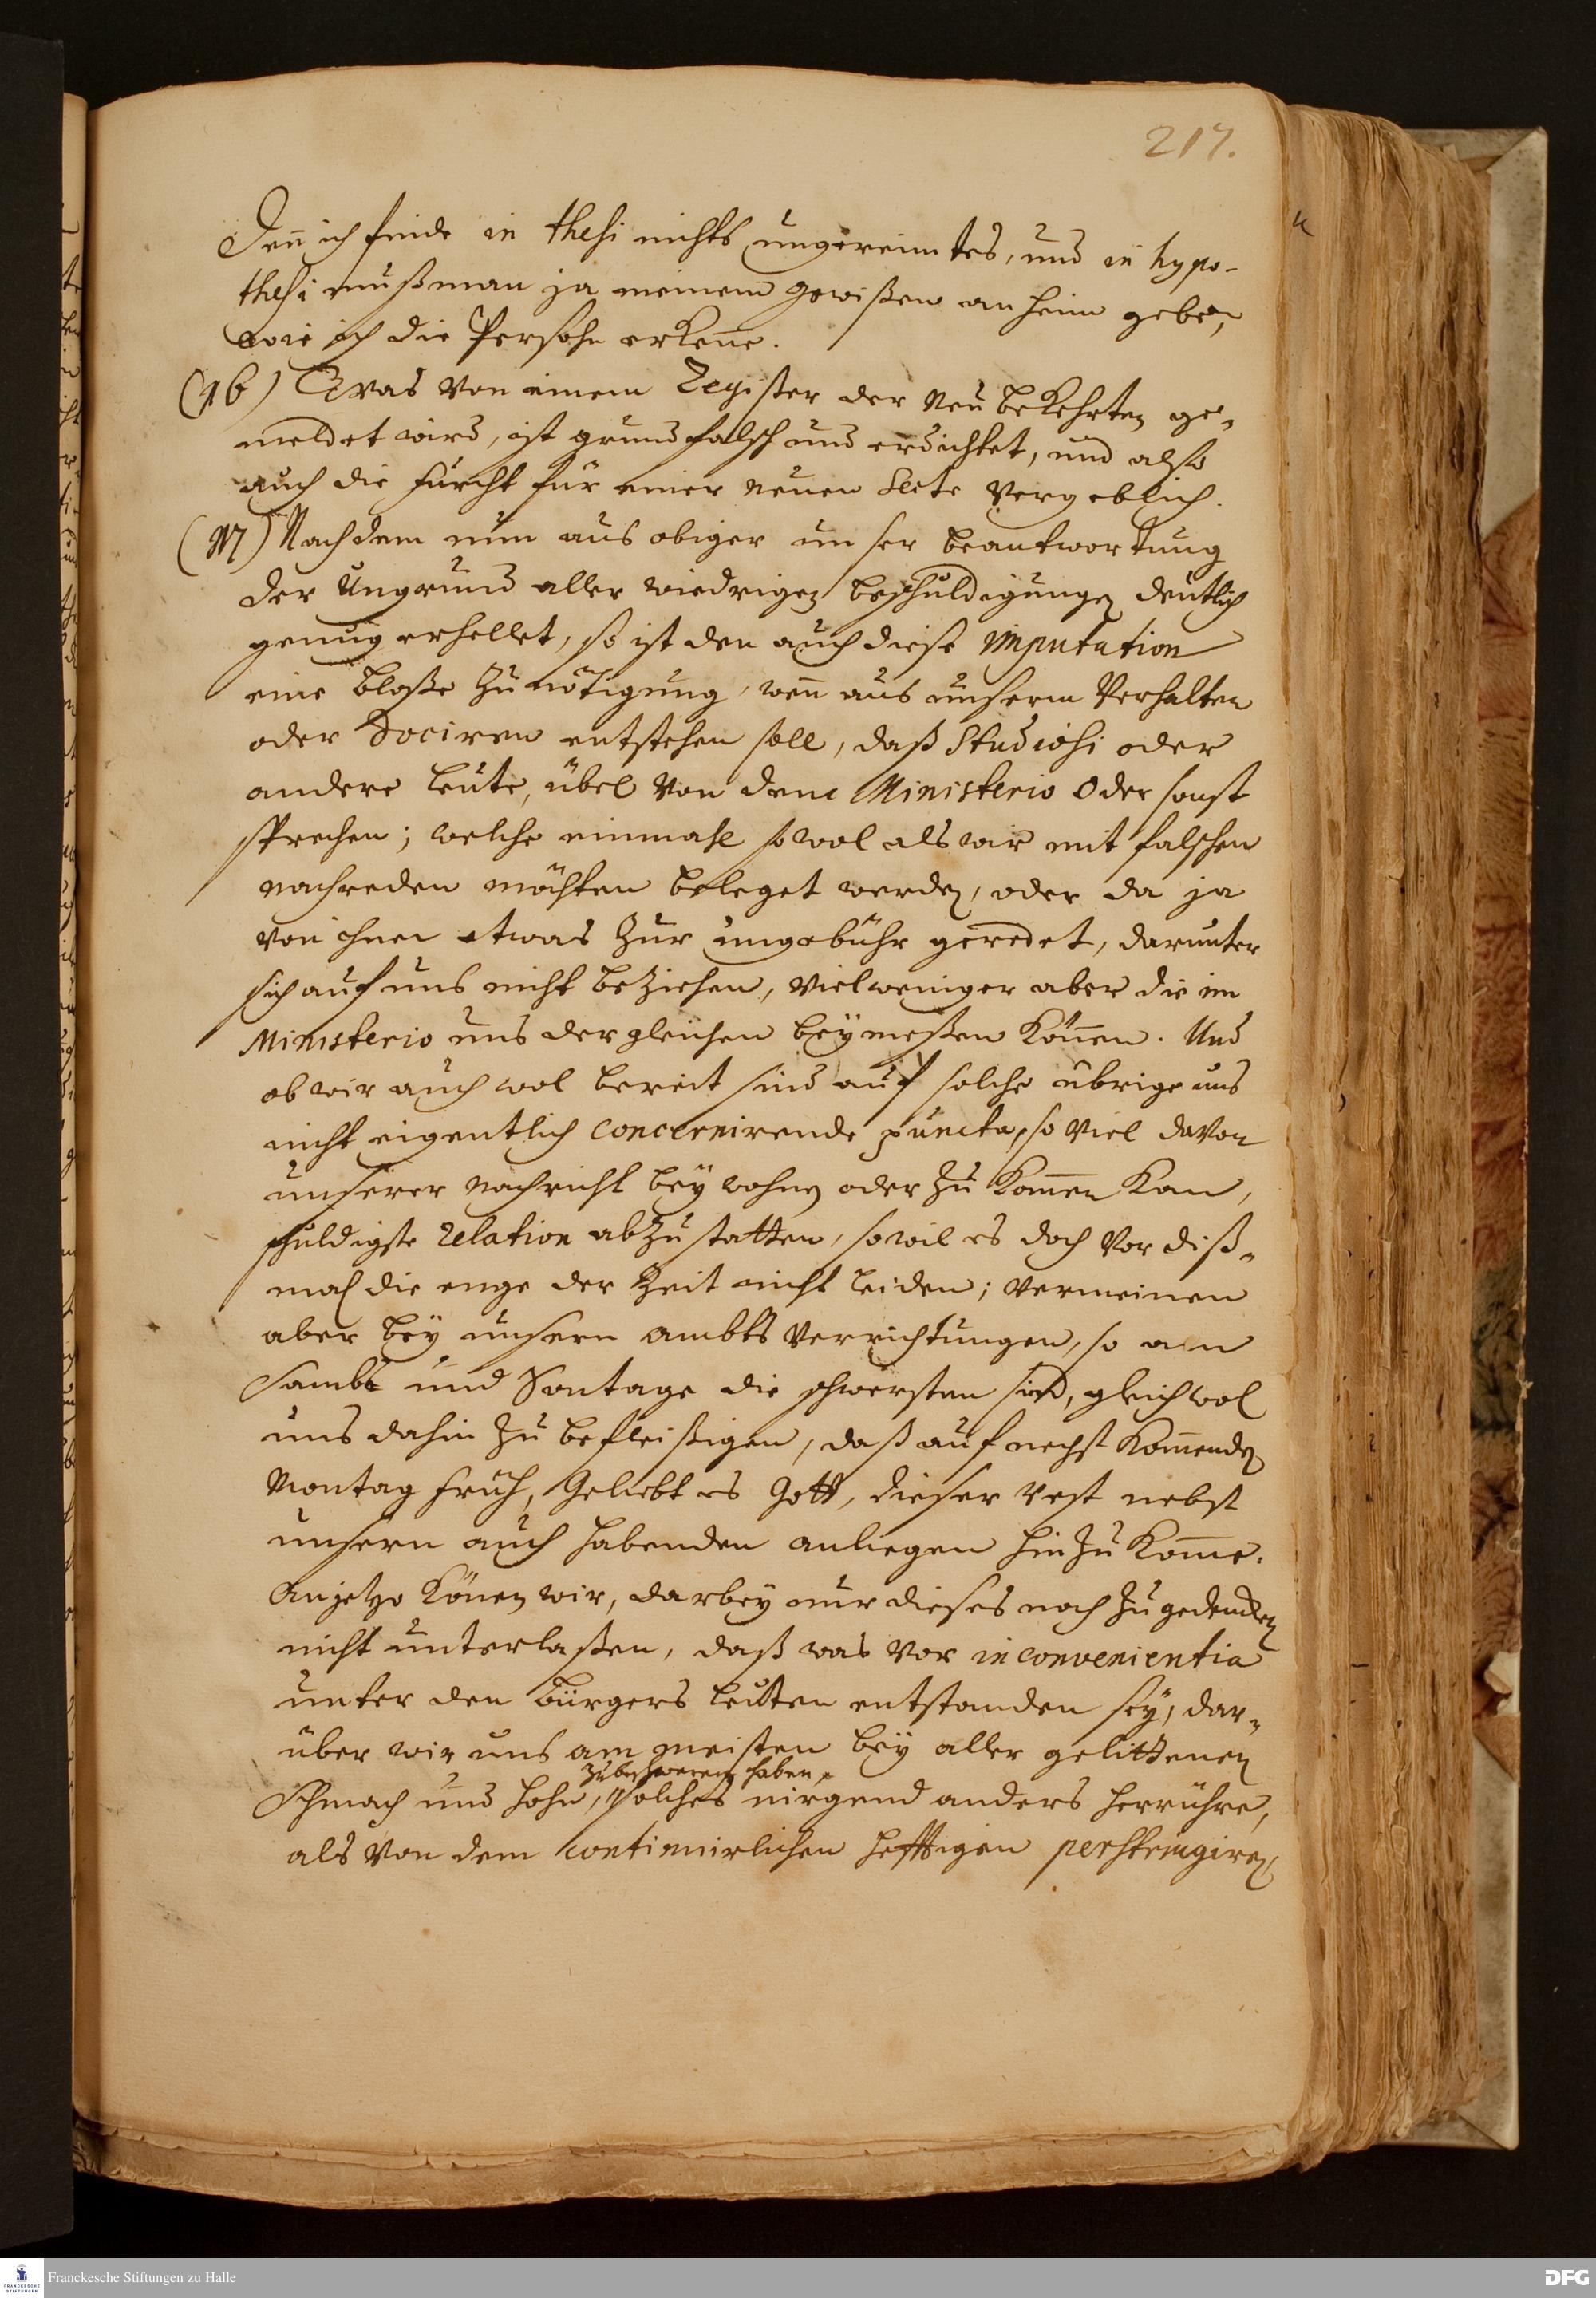 217.
Denn ich finde in thesi nichts ungereimtes, und in hypo-
thesi muß man ja meinem gewißen anheim geben,
wie ich die Persohn erkenne.
(16) Was von einem Register der Neubekehrten ge-
meldet wird, ist grundfalsch und erdichtet, und also
auch die furcht für einer neuen Secte vergeblich.
(17) Nachdem nun aus obiger unser beantwortung
der Ungrund aller wiedrigen beschuldigungen deutlich
genug erhellet, so ist den auch diese imputation
eine bloße Zunötigung, wenn aus unserm Verhalten
oder Dociren entstehen soll, daß Studiosi oder
andere leute, übel von dem Ministerio oder sonst
sprechen; welche einmahl sowol als wir mit falschen
nachreden möchten beleget werden, oder da ja
von ihnen etwas zur ungebühr geredet, darunter
sich auf uns nicht beziehen, vielweniger aber die im
Ministerio uns dergleichen beymeßen können. Und
ob wir auch wol bereit sind auf solche übrige uns
nicht eigentlich concernirende puncta, so viel davon
unserer nachricht beywohnen oder zu kommen kan,
schuldigste relation abzustatten, so wil es doch vor diß-
mahl die enge der Zeit nicht leiden; vermeinen
aber bey unsern ambts Verrichtungen, so am
Sambt und Sontage die schwersten sind, gleichwol
uns dahin zu befleißigen, daß auf nechst kommenden
Montag früh, Geliebt es Gott, dieser rest nebst
unsern auch habenden anliegen hinzu komme.
Anjetzo können wir, darbey nur dieses noch zu gedencken
nicht unterlaßen, daß was vor inconvenientia
unter den bürgers leuten entstanden sey, dar-
über wir uns am meisten bey aller gelittenen
zubeschweren haben,
Schmach und hohn, solches nirgend anders herrühre,
als von dem continuirlichen hefftigen perstringiren
Franckesche Stiftungen zu Halle
DFG